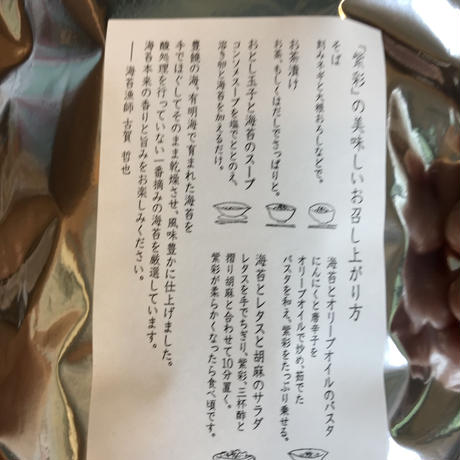 『紫彩』の美味しいお召し上がり方
そば
刻みネギと大根おろしなどで。
お茶漬け
お茶、もしくはだしでさっぱりと。
おとし玉子と海苔のスープ
コンソメスープを塩でととのえ、
溶き卵と海苔を加えるだけ。
海苔とオリーブオイルのパスタ
にんにくと唐辛子を
オリーブオイルで炒め、茹でた
パスタを和え、紫彩をたっぷり乗せる。
海苔とレタスと胡麻のサラダ
レタスを手でちぎり、紫彩、三杯酢と
摺り胡麻と合わせて10分置く。
紫彩が柔らかくなったら食べ頃です。
豊饒の海、有明海で育まれた海苔を
手でほぐしてそのまま乾燥させ、風味豊かに仕上げました。
酸処理を行っていない一番摘みの海苔を厳選しています。
海苔本来の香りと旨みをお楽しみください。
── 海苔漁師 古賀 哲也